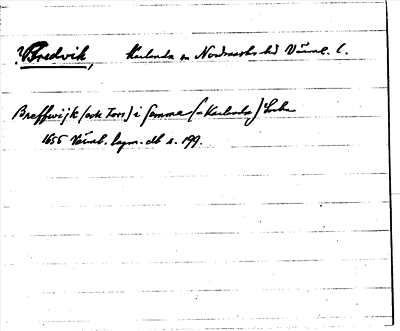 ?Bredvik, Karlanda sn Nordmarks hd Värml. l.
Breffwijk (och Fors) i samma (= Karlanda) Sochn
1655 Värml. lagm.-db s. 199.